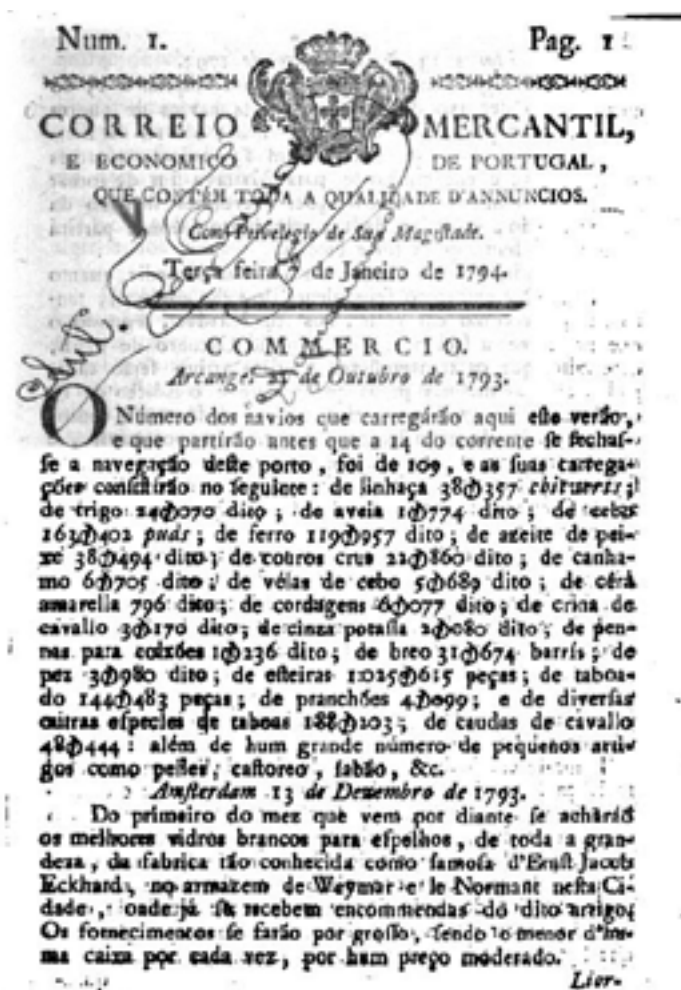 Num. 1.
Pag. 1
CORREIO MERCANTIL,
E ECONOMICO DE PORTUGAL,
QUE CONTÉM TODA A QUALIDADE D'ANNUNCIOS.
Com Privelegio de Sua Magestade.
Terça feira 7 de Janeiro de 1794.
COMMERCIO.
Arcangel 21 de Outubro de 1793.
O Número dos navios que carregárão aqui eſte verão,
e que partirão antes que a 14 do corrente ſe fechaſ-
ſe a navegação deſte porto, foi de 109, e as ſuas carrega-
ções conſiſtirão no ſeguinte: de linhaça 38₥357
de trigo 24₥070 dito; de aveia 1₥774 dito; de cebo
163₥402 puds; de ferro 119₥957 dito; de azeite de pei-
xe 38₥494 dito; de couros crus 22₥860 dito; de canha-
mo 6₥705 dito; de vélas de cebo 5₥689 dito; de cêra
amarella 796 dito; de cordagens 6₥077 dito; de crina de
cavallo 3₥170 dito; de cinza potaſſa 2₥080 dito; de pen-
nas para colxões 1₥236 dito; de breo 31₥674 barrís; de
pez 3₥980 dito; de eſteiras 1:025₥615 peças; de taboa-
do 144₥483 peças; de pranchões 4₥099; e de diverſas
outras eſpecies de taboas 188₥203; de caudas de cavallo
48₥444: além de hum grande número de pequenos arti-
gos como pelles, caſtoreo, ſabão, &c.
Amſterdam 13 de Dezembro de 1793.
Do primeiro do mez que vem por diante ſe acharáõ
os melhores vidros brancos para eſpelhos, de toda a gran-
deza, da fabrica tão conhecida como famoſa d'Ernſt Jacobs
Eckhard, no armazem de Weymar e le Normant neſta Ci-
dade, onde já ſe recebem encommendas do dito artigo.
Os fornecimentos ſe farão por groſſo, ſendo o menor d'hu-
ma caixa por cada vez, por hum preço moderado.
Lior-